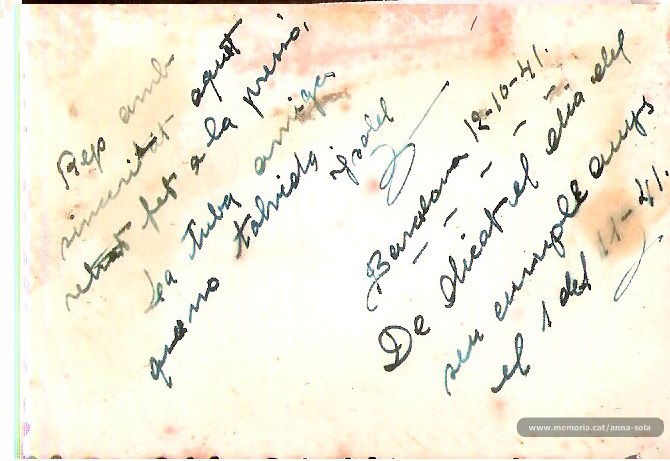 Rep amb
sinceritat aquet
retrat fet a la presó,
La tuba amiga
que no tolvida
isabel
Barcelona 12-10-41.
De dicat el dia del
seu cumple anys
el 1 del 11-41.
www.memoria.cat/anna-sola